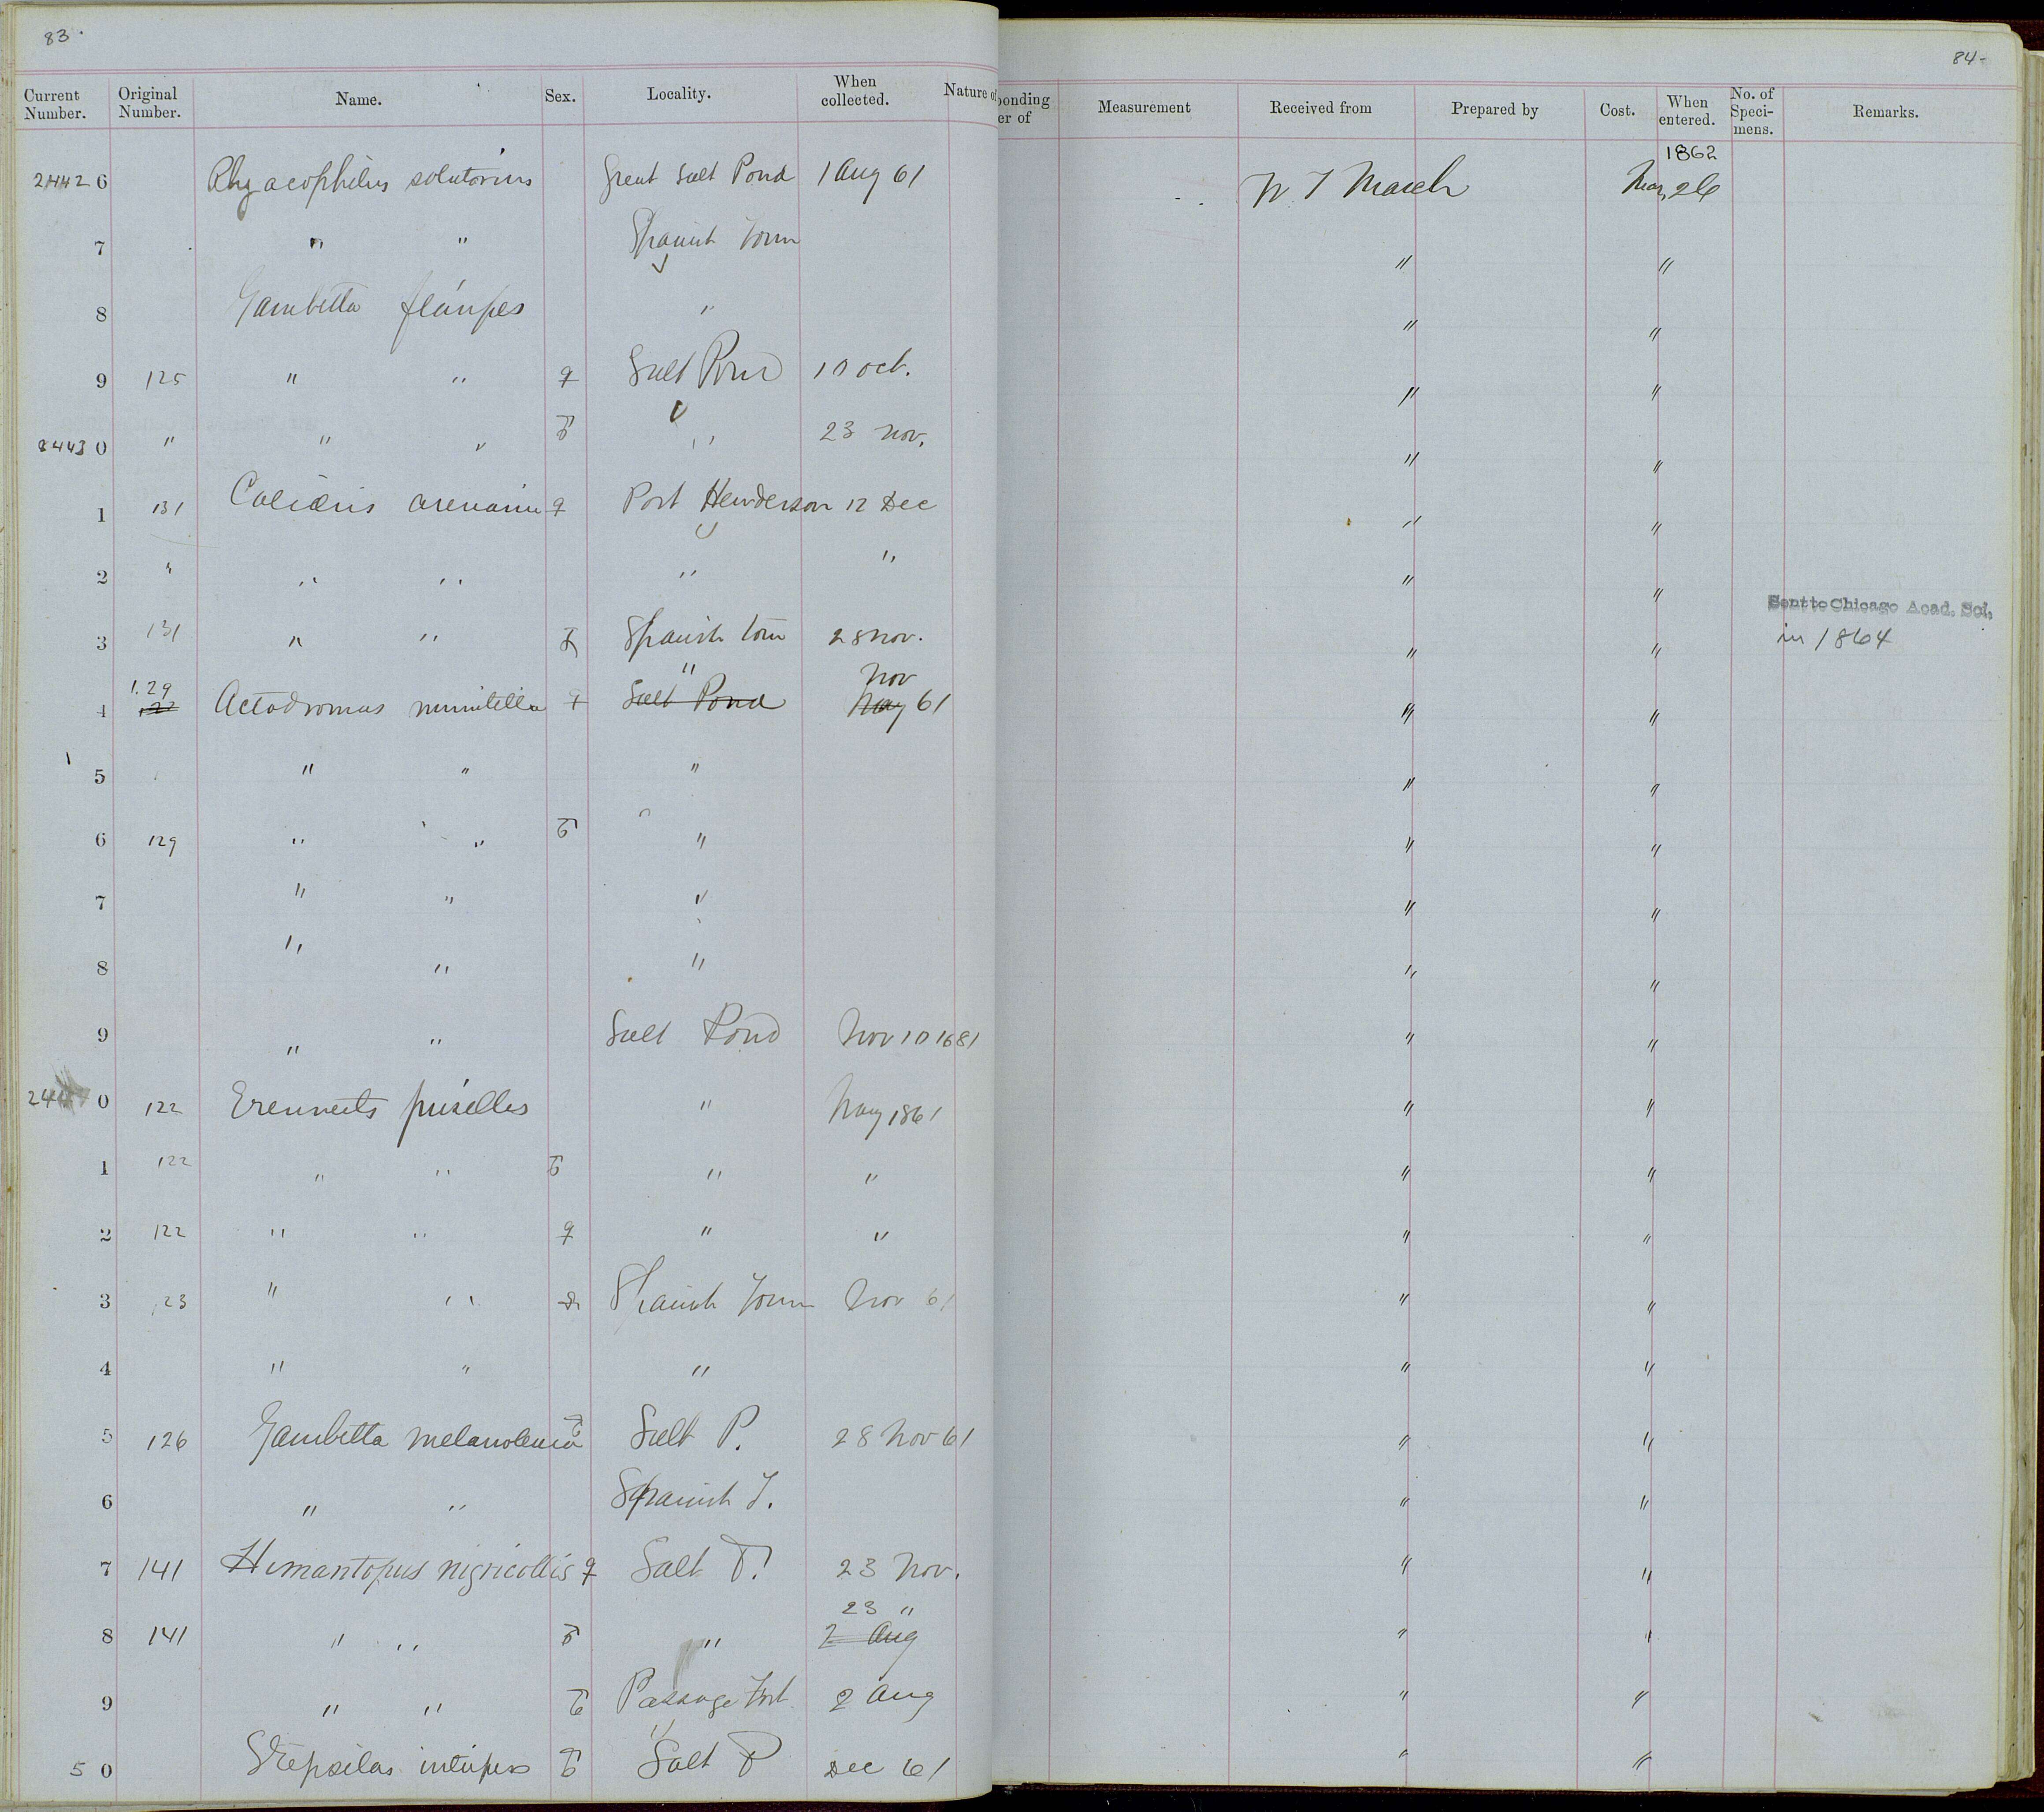 83
84-
Current Number. Original Number. Name. Sex. Locality. When collected. Nature of
ponding er of Measurement Received from Prepared by Cost. When entered. No. of Speci-mens. Remarks.
1862
24426 Rhyacophilus solitarius Great Salt Pond 1 Aug 61 W. T March Mar, 26
7 " " Spanish Town " "
8 Gambetta flavipes " " "
9 125 " " ♀ Salt Pond 10 Oct. " "
24430 " " " ♂ " 23 Nov. " "
1 131 Calidris arenaria ♀ Port Henderson 12 Dec " "
2 " " " " " " "
Sent to Chicago Acad. Sci.
3 131 " " ♂ Spanish Town 28 Nov. " " in 1864
" Nov
4 1.29 Actodromas minutilla ♀ Salt Pond May 61 " "
5 " " " " "
6 129 " " ♂ " " "
7 " " " " "
8 " " " " "
9 " " Salt Pond Nov 10 1681 " "
244 0 122 Ereunetes pusillus " May 1861 " "
1 122 " " ♂ " " " "
2 122 " " ♀ " " " "
3 123 " " Spanish Town Nov 61 " "
4 " " " " "
5 126 Gambetta melanoleuca ♂ Salt P. 28 Nov 61 " "
6 " " Spanish T. " "
7 141 Himantopus nigricollis ♀ Salt P. 23 Nov. " "
23 "
8 141 " " ♂ " 2 Aug " "
9 " " ♂ Passage Fort 2 Aug " "
5 0 Strepsilas interpres ♂ Salt P Dec 61 " "